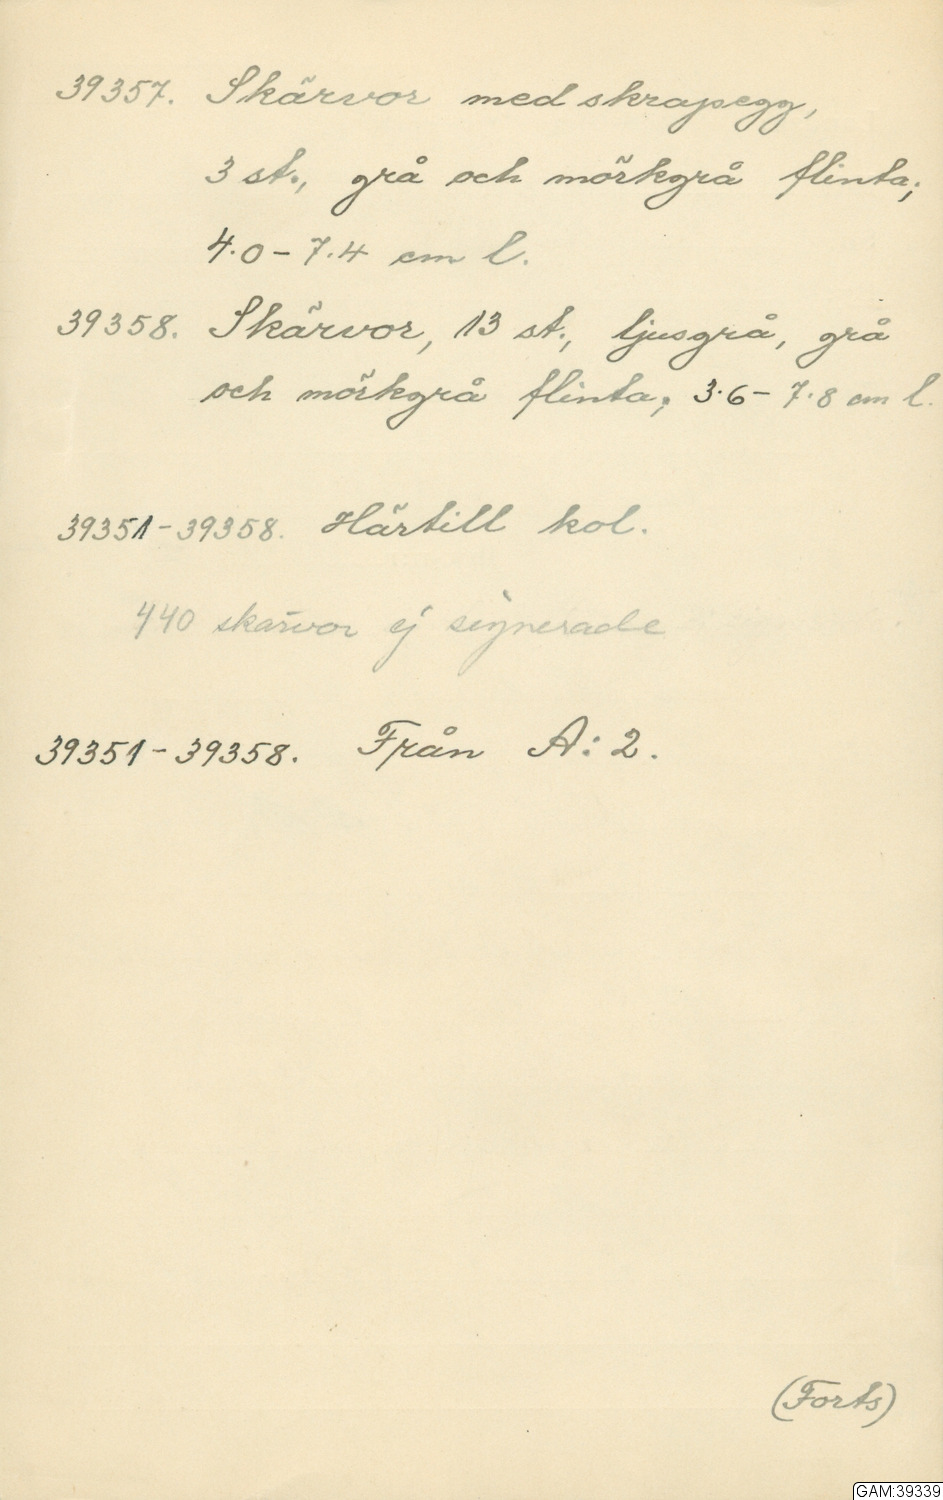 39357. Skärvor med skrapegg,
3 st., grå och mörkgrå flinta;
4.0 - 7.4 cm l.
39358. Skärvor, 13 st., ljusgrå, grå
och mörkgrå flinta; 3.6 - 7.8 cm l.
39351 - 39358. Härtill kol.
440 skärvor ej signerade
39351 - 39358. Från A: 2.
(Forts)
GAM:39339